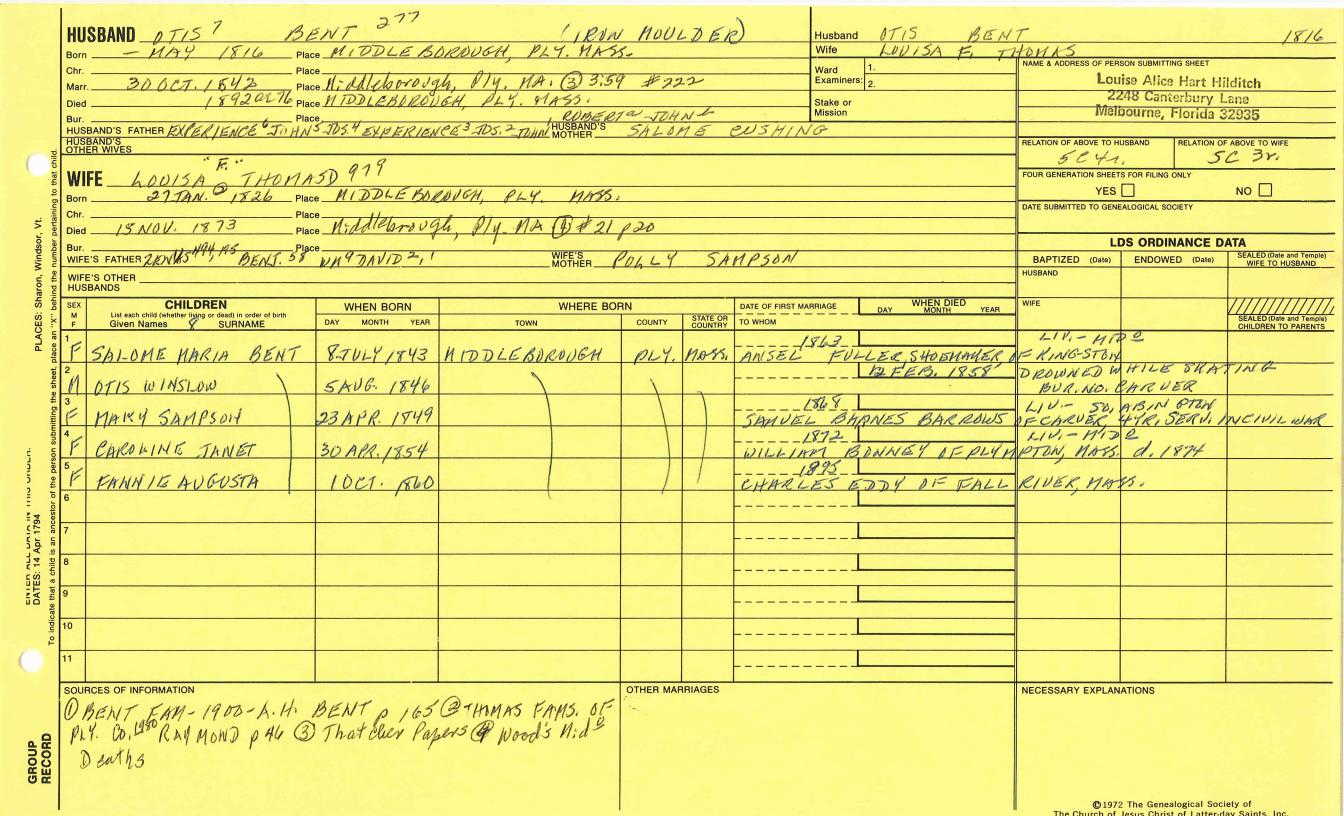 HUSBAND OTIS 7 BENT 277 (IRON MOULDER)
Born - MAY 1816 Place MIDDLEBOROUGH, PLY. MASS.
Chr. Place
Marr. 30 OCT. 1842 Place Middleborough, Ply. MA. ③ 3:59 #222
Died 1892 Place MIDDLEBOROUGH, PLY. MASS.
Bur. Place
HUSBAND'S FATHER EXPERIENCE 6 JOHN 5 JOS. 4 EXPERIENCE 3 JOS. 2 JOHN ROBERT JOHN HUSBAND'S MOTHER SALOME CUSHING
HUSBAND'S OTHER WIVES
WIFE LOUISA "F." ② THOMAS 979
Born 27 JAN. 1826 Place MIDDLEBOROUGH, PLY. MASS.
Chr. Place
Died 15 NOV. 1873 Place Middleborough, Ply. MA ④ #21 p20
Bur. Place
WIFE'S FATHER BENJ. 58 WM 9 DAVID 2, 1 WIFE'S MOTHER POLLY SAMPSON
WIFE'S OTHER HUSBANDS
Husband OTIS BENT 1816
Wife LOUISA F. THOMAS
Ward Examiners: 1.
2.
Stake or Mission
NAME & ADDRESS OF PERSON SUBMITTING SHEET
Louise Alice Hart Hilditch
2248 Canterbury Lane
Melbourne, Florida 32935
RELATION OF ABOVE TO HUSBAND RELATION OF ABOVE TO WIFE
5C 4r. 5C 3r.
FOUR GENERATION SHEETS FOR FILING ONLY
YES NO
DATE SUBMITTED TO GENEALOGICAL SOCIETY
LDS ORDINANCE DATA
BAPTIZED (Date) ENDOWED (Date) SEALED (Date and Temple) WIFE TO HUSBAND
HUSBAND
WIFE
SEALED (Date and Temple) CHILDREN TO PARENTS
SEX M F CHILDREN WHEN BORN WHERE BORN DATE OF FIRST MARRIAGE WHEN DIED
List each child (whether living or dead) in order of birth
Given Names SURNAME DAY MONTH YEAR TOWN COUNTY STATE OR COUNTRY TO WHOM DAY MONTH YEAR
1 1863 LIV.- MID o
F SALOME MARIA BENT 8 JULY 1843 MIDDLEBOROUGH PLY. MASS. ANSEL FULLER SHOEMAKER OF KINGSTON
2 12 FEB. 1858 DROWNED WHILE SKATING
M OTIS WINSLOW 5 AUG. 1846 BUR. NO. CARVER
3 1868 LIV.- SO. ABINGTON
F MARY SAMPSON 23 APR. 1849 SAMUEL BARNES BARROWS OF CARVER, 4 YR. SERV. IN CIVIL WAR
4 1872 LIV.- MID o
F CAROLINE JANET 30 APR. 1854 WILLIAM BONNEY OF PLYMPTON, MASS. d. 1874
5 1895
F FANNIE AUGUSTA 1 OCT. 1860 CHARLES EDDY OF FALL RIVER, MASS.
6
7
8
9
10
11
SOURCES OF INFORMATION OTHER MARRIAGES NECESSARY EXPLANATIONS
① BENT FAM- 1900- A.H. BENT p 165 ② THOMAS FAMS. OF
PLY. CO. 1980 RAYMOND p 46 ③ Thatcher Papers ④ Wood's Mid o
Deaths
©1972 The Genealogical Society of
The Church of Jesus Christ of Latter-day Saints, Inc.
PLACES: Sharon, Windsor, Vt.
ENTER ALL DATA IN THIS ORDER:
DATES: 14 Apr 1794
To indicate that a child is an ancestor of the person submitting the sheet, place an "X" behind the number pertaining to that child.
GROUP RECORD